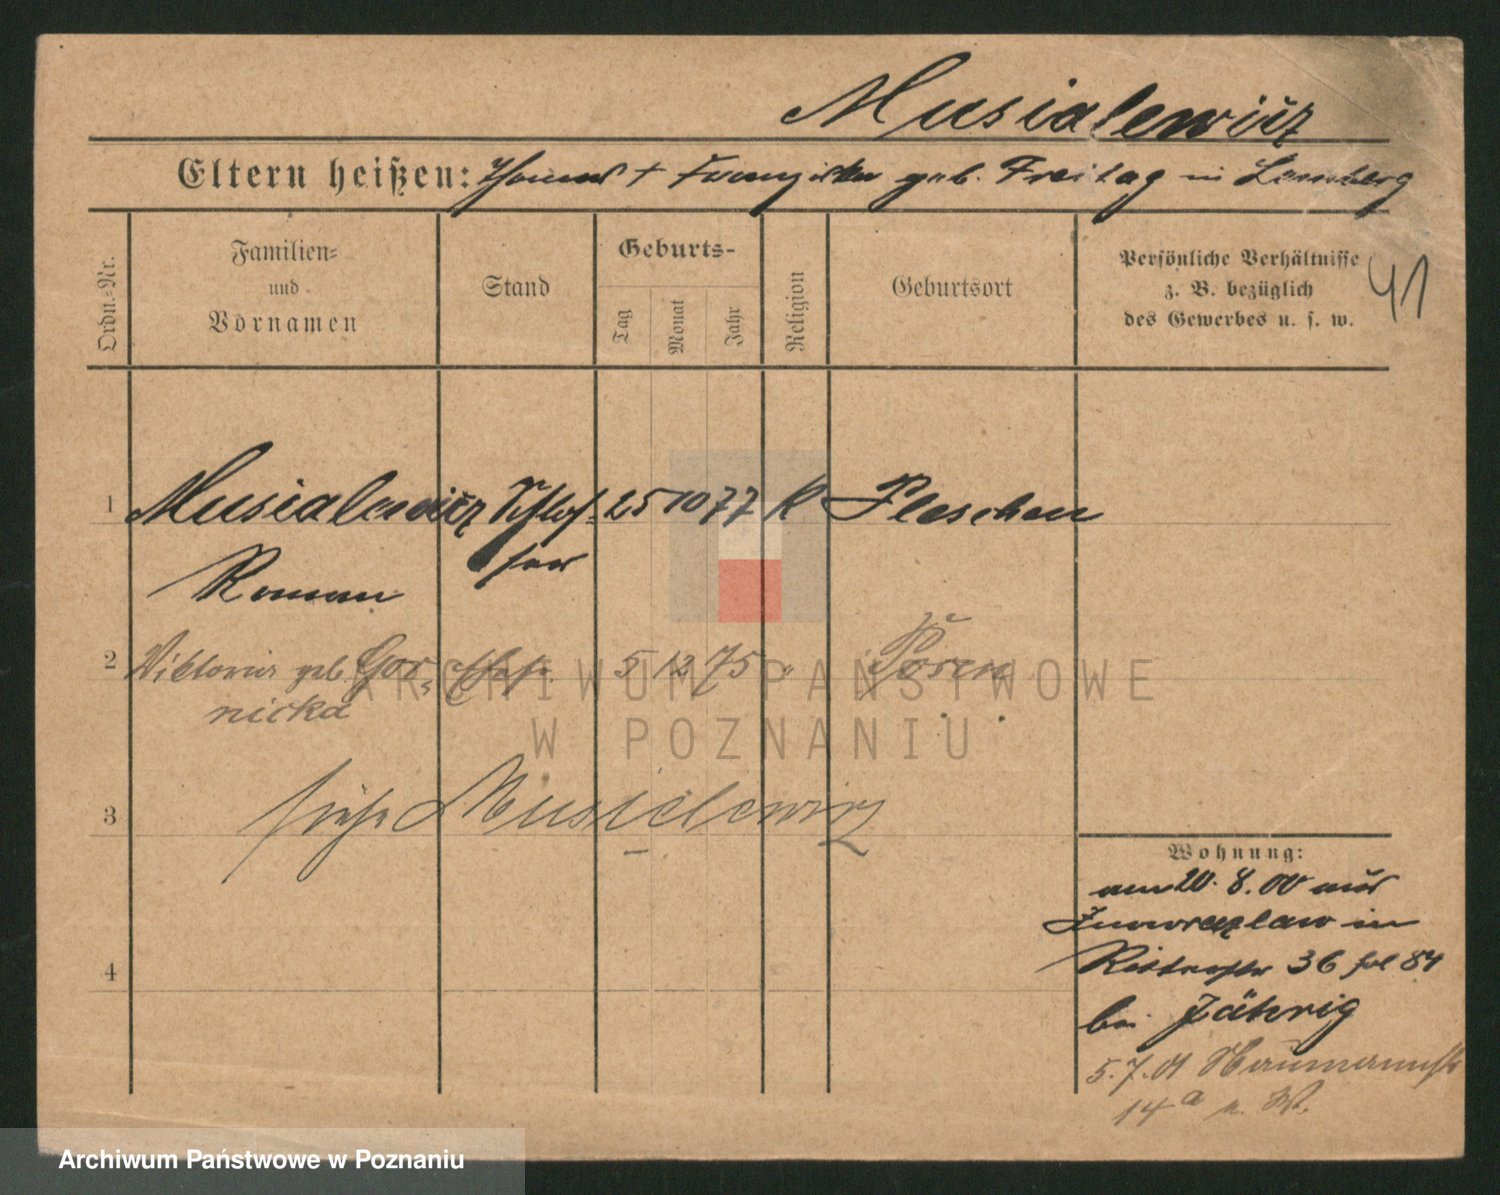 Musialewicz
Eltern heißen: Thomas + Franziska geb. Freitag in Lemberg
Ordn.-Nr.
Familien-
und
Vornamen
Stand
Geburts-
Tag
Monat
Jahr
Religion
Geburtsort
Persönliche Verhältnisse
z. B. bezüglich
des Gewerbes u. s. w.
41
1 Musialewicz Schlos- 25 10 77 K Pleschen
Roman ser
2 Viktoria geb. Gor- Ehefr. 5 12 75 " Posen
nicka
siehe Musielewicz
3
4
Wohnung:
am 20. 8. 00 aus
Inowrazlaw in
36 84
bei Jährig
5. 7. 01 Naumannstr
14a n. W.
ARCHIWUM PAŃSTWOWE
W POZNANIU
Archiwum Państwowe w Poznaniu